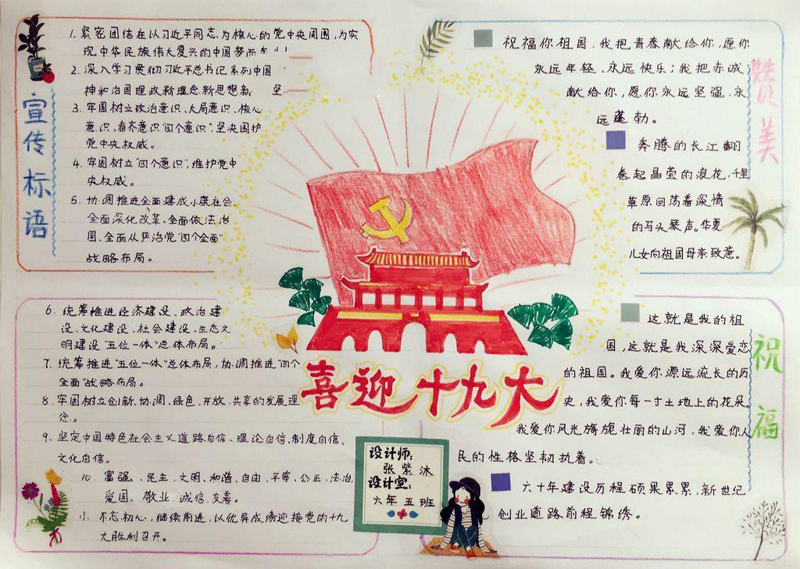 宣传标语
1. 紧密团结在以习近平同志为核心的党中央周围,为实
现中华民族伟大复兴的中国梦而
2. 深入学习贯彻习近平总书记系列中国
神和治国理政新理念新思想新 坚
3. 牢固树立政治意识、大局意识、核心
意识、看齐意识“四个意识”,坚决围护
党中央权威。
4. 牢固树立“四个意识”,维护党中
央权威。
5. 协调推进全面建成小康社会、
全面深化改革、全面依法治
国、全面从严治党“四个全面”
战略布局。
6. 统筹推进经济建设、政治建
设、文化建设、社会建设、生态文
明建设“五位一体”总体布局。
7. 统筹推进“五位一体”总体布局,协调推进“四个
全面”战略布局。
8. 牢固树立创新、协调、绿色、开放、共享的发展理
念。
9. 坚定中国特色社会主义道路自信、理论自信、制度自信、
文化自信。
10. 富强、民主、文明、和谐、自由、平等、公正、法治、
爱国、敬业、诚信、友善。
不忘初心,继续前进,以优异成绩迎接党的十九
大胜利召开。
喜迎十九大
设计师:
张紫冰
设计室:
六年五班
赞美
祝福你祖国,我把青春献给你,愿你
永远年轻、永远快乐;我把赤诚
献给你,愿你永远坚强、永
远蓬勃。
奔腾的长江翻
卷起晶莹的浪花,千里
草原回荡着深情
的马头琴声。华夏
儿女向祖国母亲致意。
祝福
这就是我的祖
国,这就是我深深爱恋
的祖国。我爱你源远流长的历
史,我爱你每一寸土地上的花朵,
我爱你风光旖旎壮丽的山河,我爱你人
民的性格坚韧执着。
六十年建设历程硕果累累,新世纪
创业道路前程锦绣。